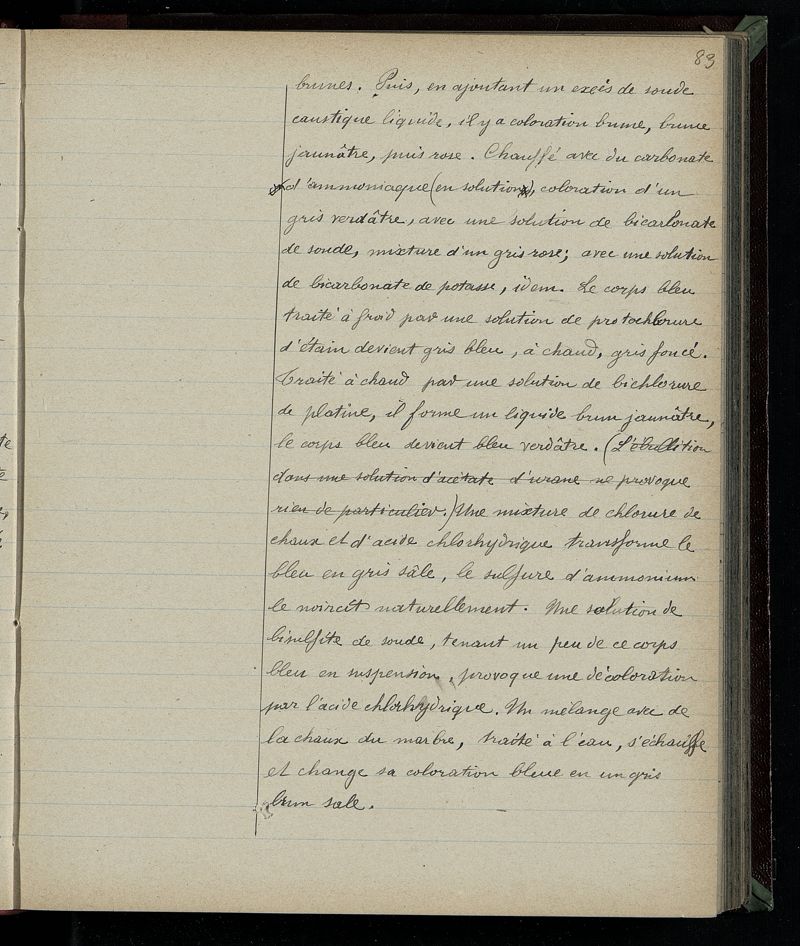 83
brunes. Puis, en ajoutant un excés de soude
caustique liquide, il y a coloration brune, brune
jaunâtre, puis rose. Chauffé avec du carbonate
d'ammoniaque (en solution), coloration d'un
gris verdâtre, avec une solution de bicarbonate
de soude, mixture d'un gris rose; avec une solution
de bicarbonate de potasse, idem. Le corps bleu
traité à froid par une solution de protochlorure
d'étain devient gris bleu, à chaud, gris foncé.
Traité à chaud par une solution de bichlorure
de platine, il forme un liquide brun jaunâtre,
le corps bleu devient bleu verdâtre. (L'ébullition
dans une solution d'acétate d'urane ne provoque
rien de particulier.) Une mixture de chlorure de
chaux et d'acide chlorhydrique transforme le
bleu en gris sâle, le sulfure d'ammonium
le noircit naturellement. Une solution de
bisulfite de soude, tenant un peu de ce corps
bleu en suspension, provoque une décoloration
par l'acide chlorhydrique. Un mélange avec de
la chaux du marbre, traité à l'eau, s'échauffe
et change sa coloration bleue en un gris
brun sale.